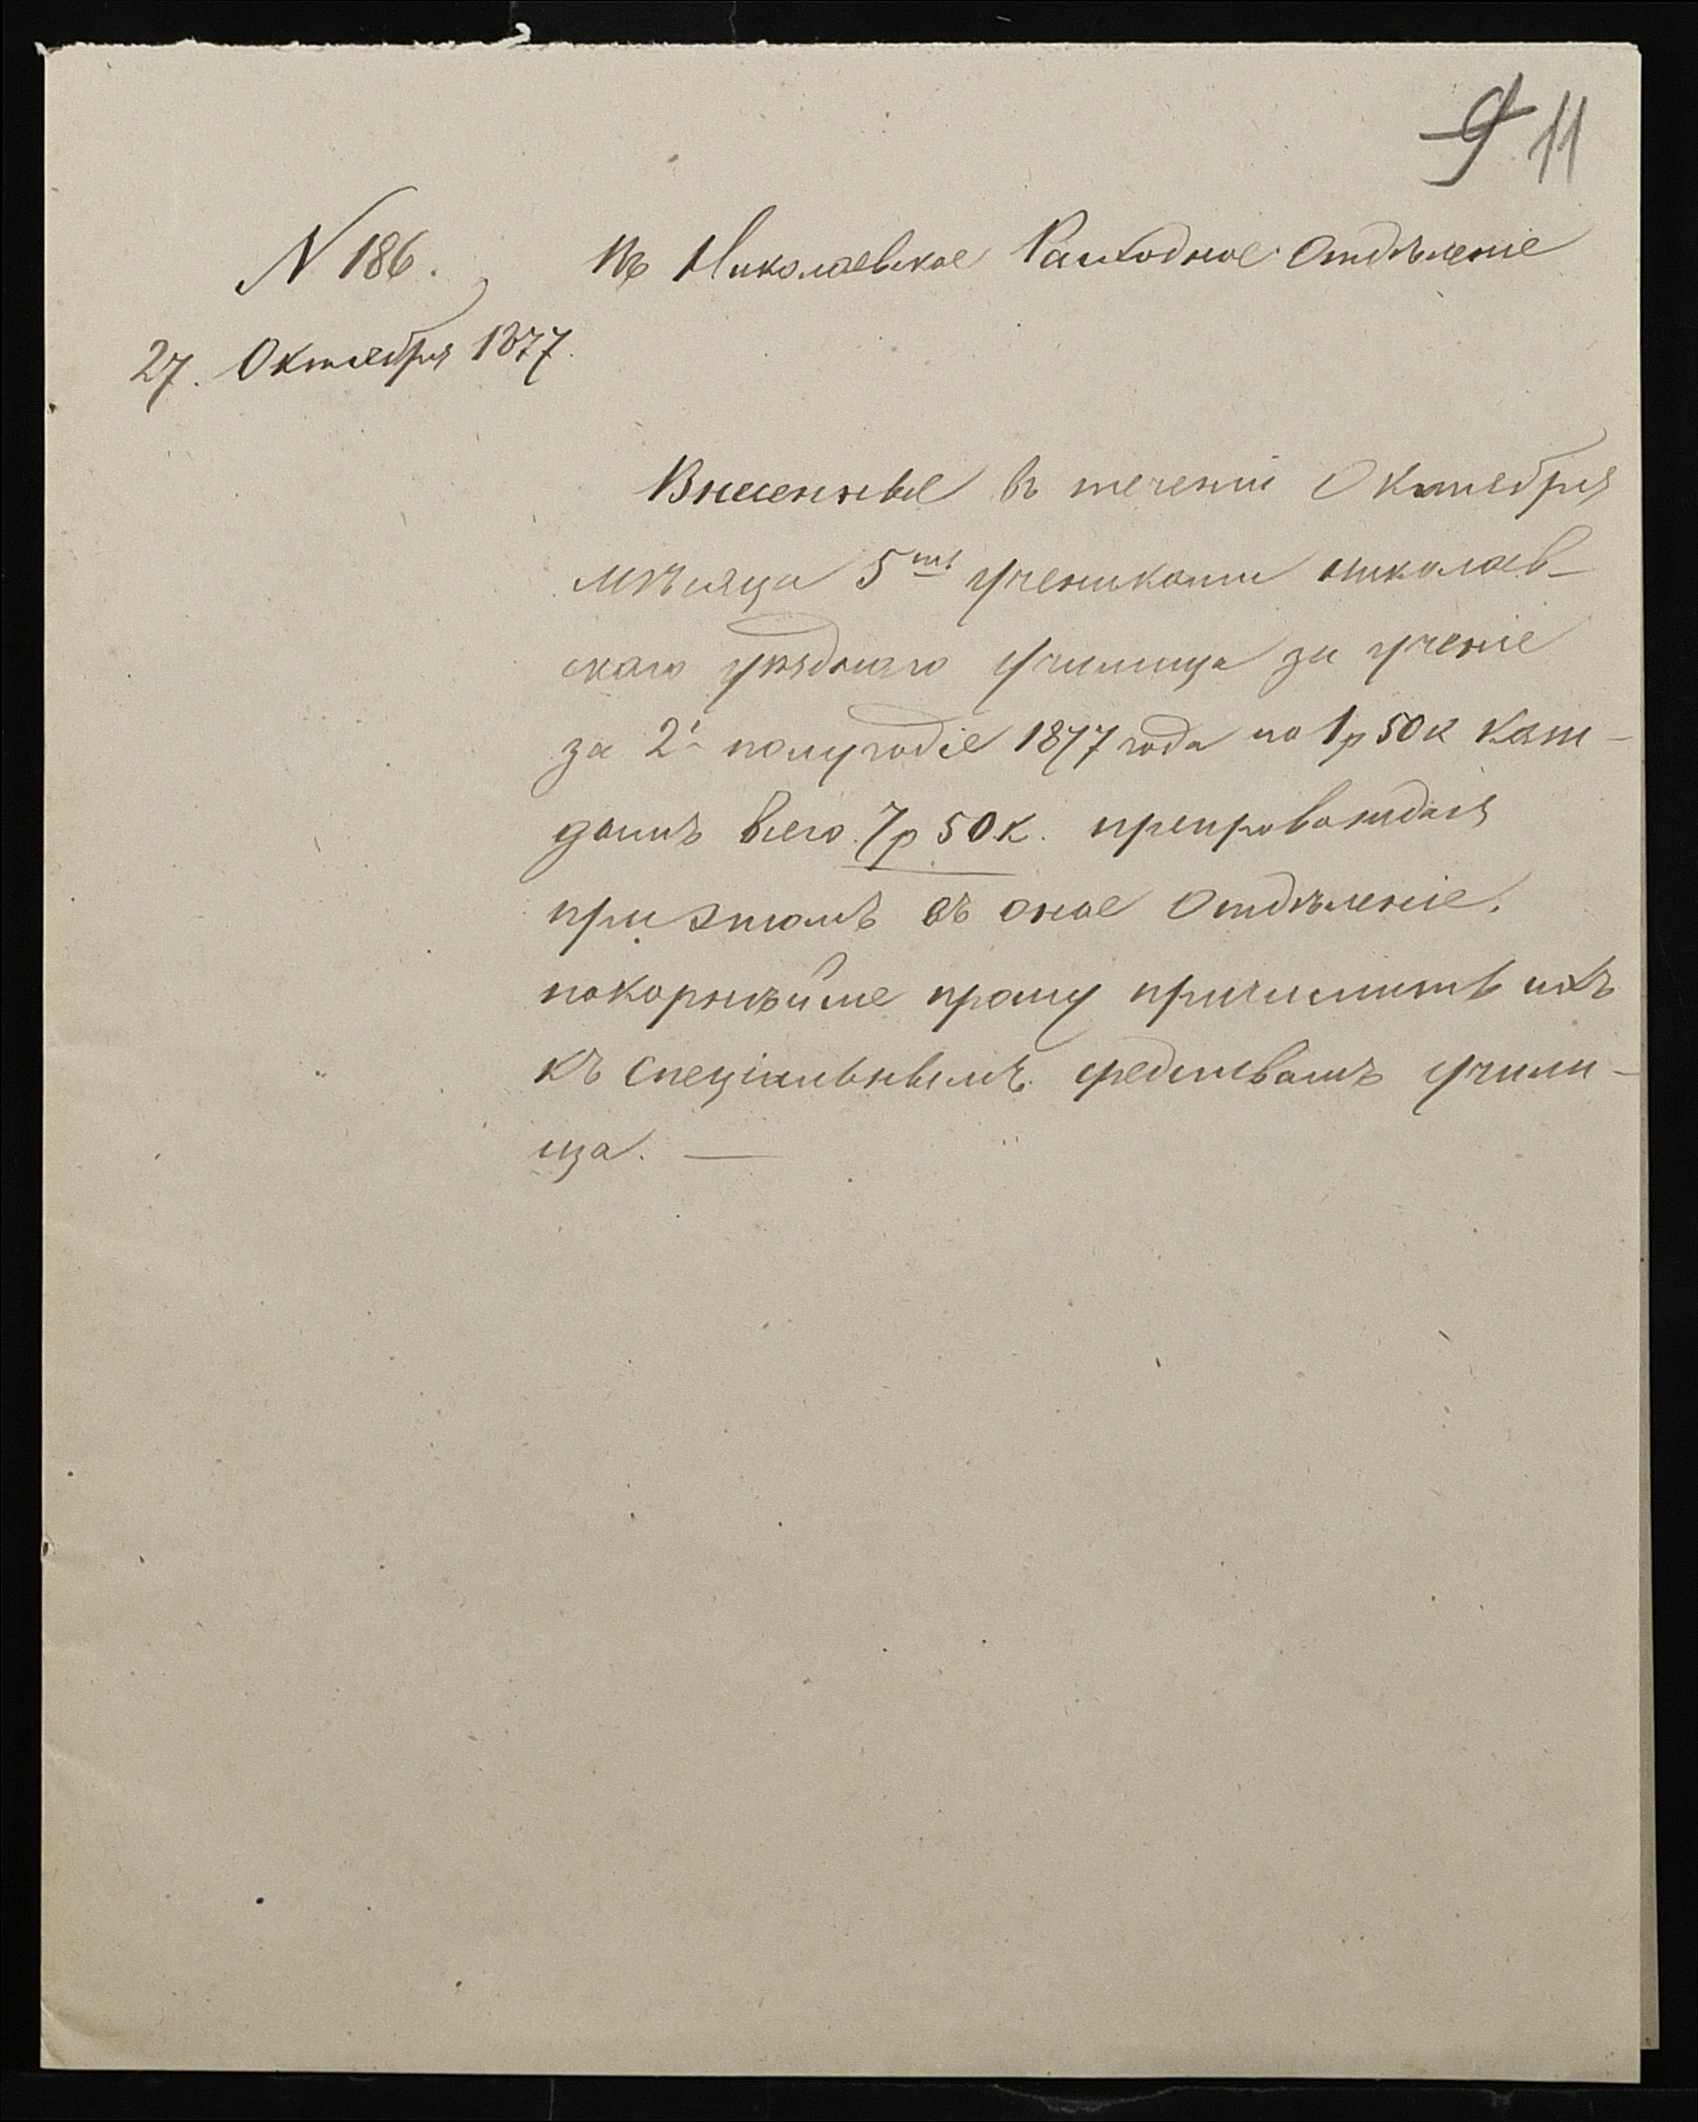 9 11
N 186.
Въ Николаевское Расходное Отдѣленіе
27. Октября 1877.
Внесенные въ теченіи Октября
мѣсяца 5ть учениками николаев-
скаго уѣзднаго училища за ученіе
за 2е полугодіе 1877 года по 1р 50к каж-
дымъ всего 7р 50к. препровождая
при этомъ въ оное Отдѣленіе,
покорнѣйше прошу причислить ихъ
къ спеціальнымъ средствамъ учили-
ща. —